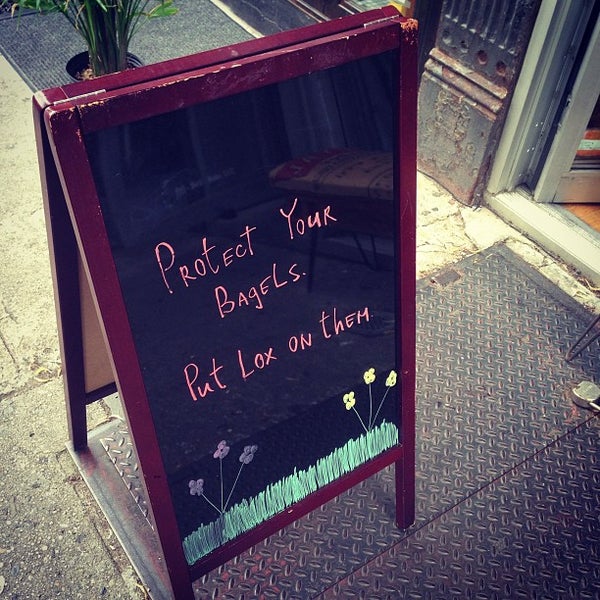 Protect Your
Bagels.
Put Lox on them.